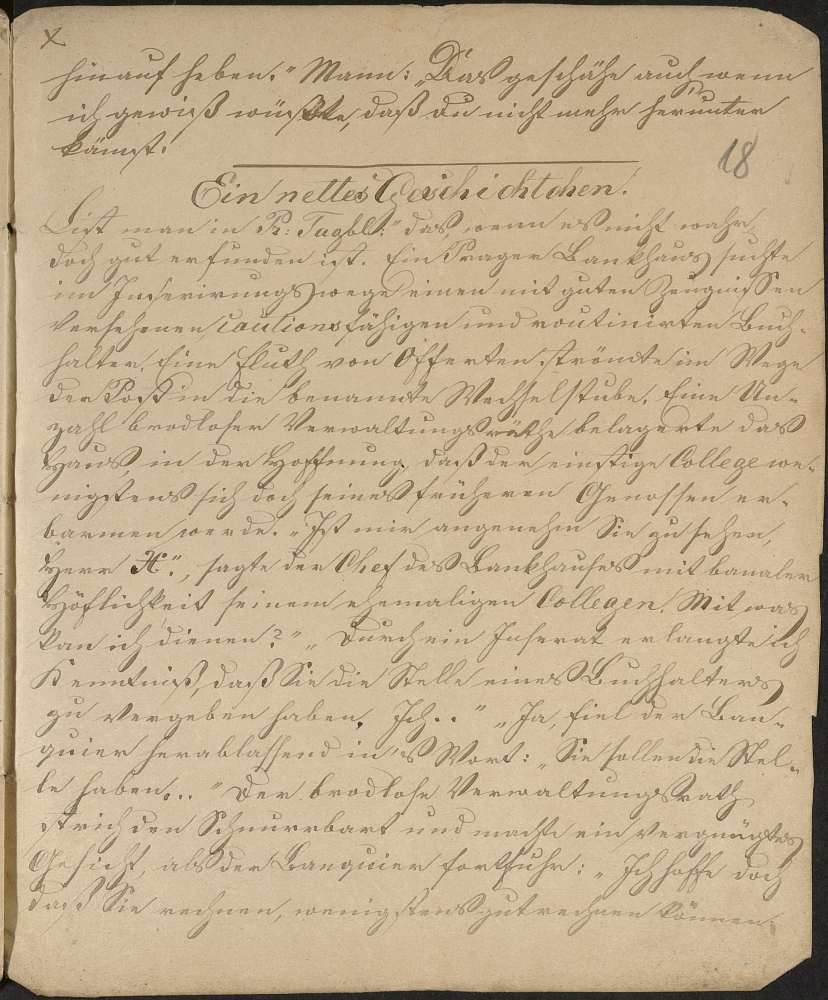 x
hinauf heben." Mann: "Das geschähe auch, wenn
ich gewiß wüßte, daß du nicht mehr herunter
kämst.
18
Ein nettes Geschichtchen!
List man in "Pr: Tagbl:" das, wenn es nicht wahr,
doch gut erfunden ist. Ein Prager Bankhaus suchte
im Inserirungswege einen mit guten Zeugnissen
versehenen, cautionsfähigen und routinirten Buch-
halter. Eine Fluth von Offerten strömte im Wege
der Post in die benannte Wechselstube. Eine Un-
zahl brodloser Verwaltungsräthe belagerte das
Haus, in der Hoffnung, daß der einstige College we-
nigstens sich doch seines früheren Genossen er-
barmen werde. "Ist mir angenehm Sie zu sehen,
Herr X.", sagte der Chef des Bankhauses mit banaler
Höflichkeit seinem ehemaligen Collegen. Mit was
kan ich dienen?" "Durch ein Inserat erlangte ich
Kenntniß, daß Sie die Stelle eines Buchhalters
zu vergeben haben. Ich.." "Ja, fiel der Ban-
quier herablassend in's Wort: "Sie sollen die Stel-
le haben..." Der brodlose Verwaltungsrath
strich den Schnurrbart und machte ein vergnügtes
Gesicht, als der Banquier fortfuhr: "Ich hoffe doch
daß Sie rechnen, wenigstens gut rechnen können.